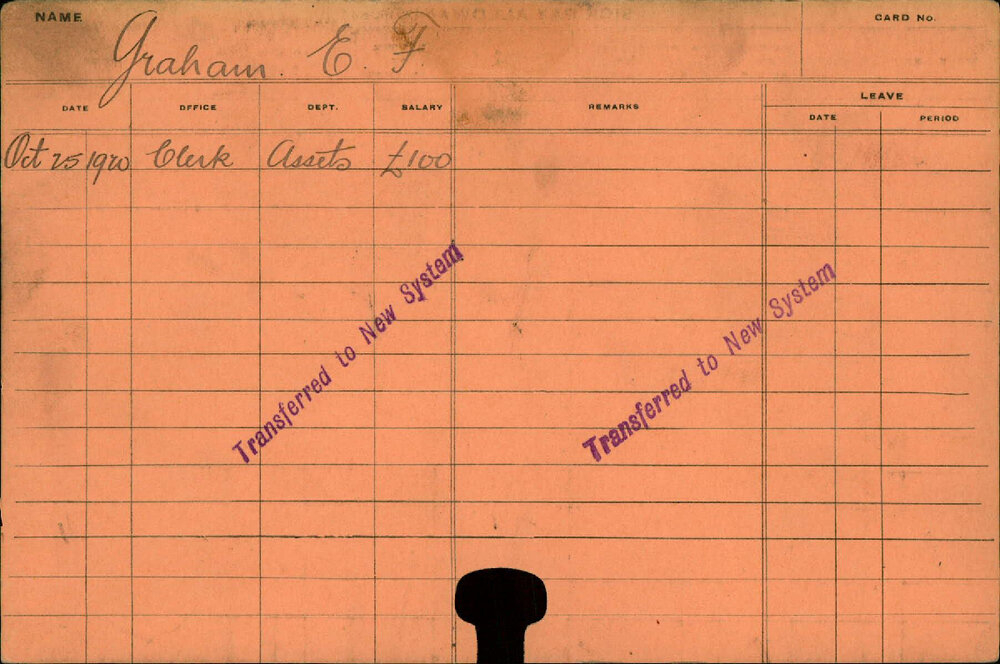 NAME Graham E. F. CARD No.
DATE OFFICE DEPT. SALARY REMARKS LEAVE
DATE PERIOD
Oct 25 1920 Clerk Assets £100
Transferred to New System
Transferred to New System